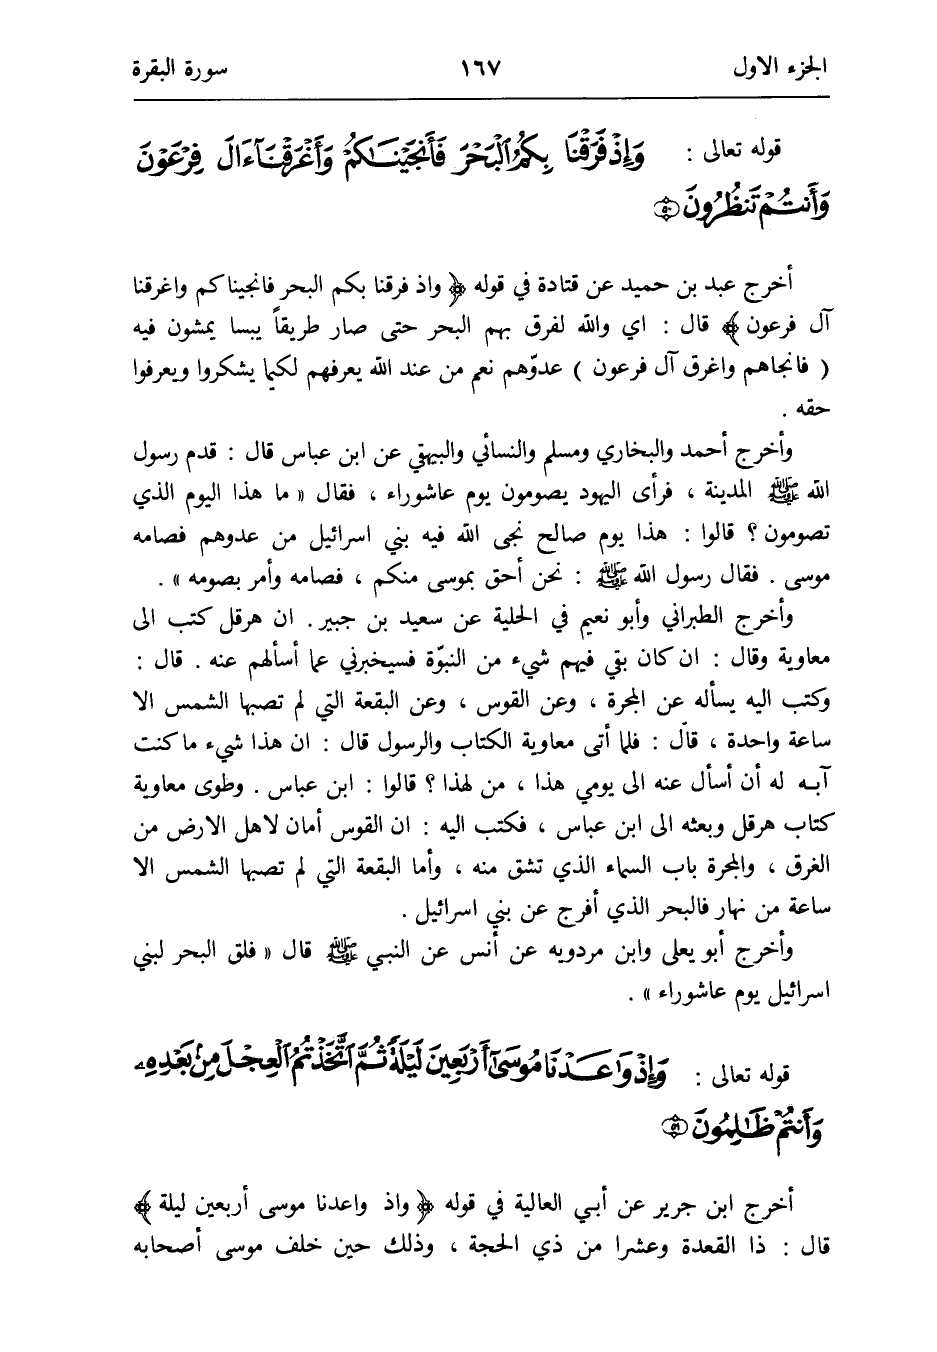 الجزء الاول ١٦٧ سورة البقرة
قوله تعالى : وَإِذْ فَرَقْنَا بِكُمُ ٱلْبَحْرَ فَأَنجَيْنَٰكُمْ وَأَغْرَقْنَآ ءَالَ فِرْعَوْنَ
وَأَنتُمْ تَنظُرُونَ ۝٥٠
أخرج عبد بن حميد عن قتادة في قوله ﴿ واذ فرقنا بكم البحر فانجيناكم واغرقنا
آل فرعون ﴾ قال : اي والله لفرق بهم البحر حتى صار طريقاً يبسا يمشون فيه
( فانجاهم واغرق آل فرعون ) عدوّهم نعم من عند الله يعرفهم لكيما يشكروا ويعرفوا
حقه .
وأخرج أحمد والبخاري ومسلم والنسائي والبيهقي عن ابن عباس قال : قدم رسول
الله ﷺ المدينة ، فرأى اليهود يصومون يوم عاشوراء ، فقال « ما هذا اليوم الذي
تصومون ؟ قالوا : هذا يوم صالح نجى الله فيه بني اسرائيل من عدوهم فصامه
موسى . فقال رسول الله ﷺ : نحن أحق بموسى منكم ، فصامه وأمر بصومه » .
وأخرج الطبراني وأبو نعيم في الحلية عن سعيد بن جبير . ان هرقل كتب الى
معاوية وقال : ان كان بقي فيهم شيء من النبوّة فسيخبرني عما أسألهم عنه . قال :
وكتب اليه يسأله عن المجرة ، وعن القوس ، وعن البقعة التي لم تصبها الشمس الا
ساعة واحدة ، قال : فلما أتى معاوية الكتاب والرسول قال : ان هذا شيء ما كنت
آبه له أن أسأل عنه الى يومي هذا ، من لهذا ؟ قالوا : ابن عباس . وطوى معاوية
كتاب هرقل وبعثه الى ابن عباس ، فكتب اليه : ان القوس أمان لاهل الارض من
الغرق ، والمجرة باب السماء الذي تشق منه ، وأما البقعة التي لم تصبها الشمس الا
ساعة من نهار فالبحر الذي أفرج عن بني اسرائيل .
وأخرج أبو يعلى وابن مردويه عن أنس عن النبي ﷺ قال « فلق البحر لبني
اسرائيل يوم عاشوراء » .
قوله تعالى : وَإِذْ وَٰعَدْنَا مُوسَىٰٓ أَرْبَعِينَ لَيْلَةً ثُمَّ ٱتَّخَذْتُمُ ٱلْعِجْلَ مِنۢ بَعْدِهِۦ
وَأَنتُمْ ظَٰلِمُونَ ۝٥١
أخرج ابن جرير عن أبي العالية في قوله ﴿ واذ واعدنا موسى أربعين ليلة ﴾
قال : ذا القعدة وعشرا من ذي الحجة ، وذلك حين خلف موسى أصحابه